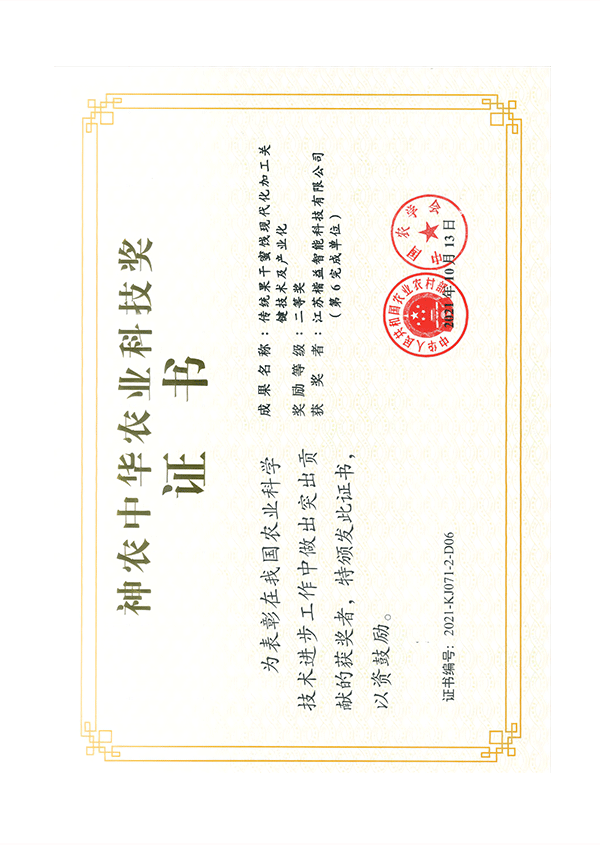 神农中华农业科技奖
证 书
为表彰在我国农业科学
技术进步工作中做出突出贡
献的获奖者,特颁发此证书,
以资鼓励。
证书编号:2021-KJ071-2-D06
成果名称:传统果干蜜饯现代化加工关
键技术及产业化
奖励等级:二等奖
获奖者:江苏楷益智能科技有限公司
(第6完成单位)
中国农学会
中华人民共和国农业农村部
2021年10月13日